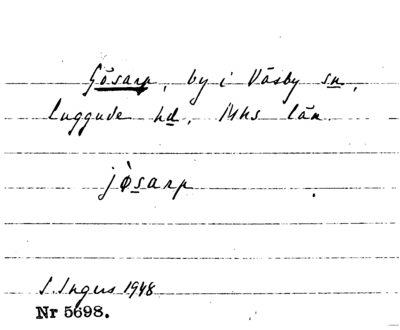 Gösarp, by i Väsby sn,
Luggude hd, Mhs län.
jø̀sarp
I. Ingers 1948
Nr 5698.